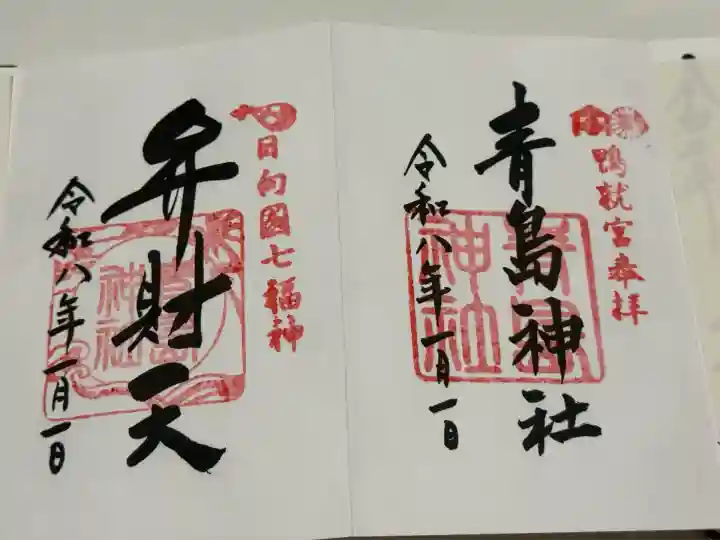 鴨就宮奉拝
青島神社
青島神社
令和八年一月一日
日向国七福神
弁財天
青島神社
令和八年一月一日